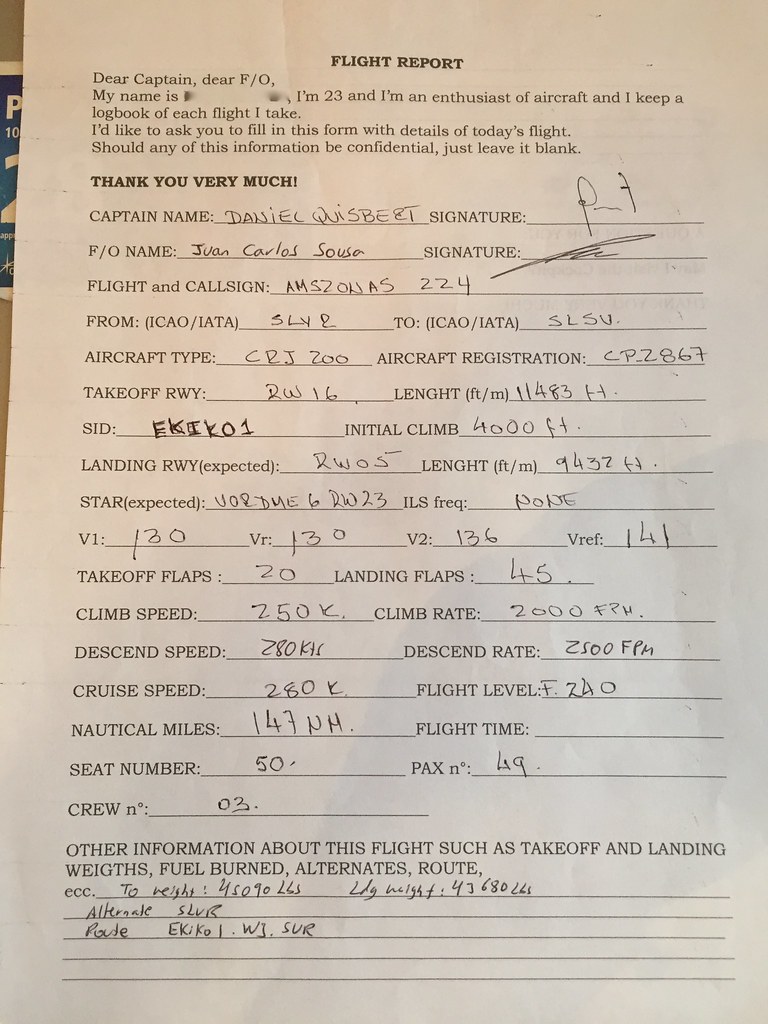 FLIGHT REPORT
Dear Captain, dear F/O,
My name is , I'm 23 and I'm an enthusiast of aircraft and I keep a
logbook of each flight I take.
I'd like to ask you to fill in this form with details of today's flight.
Should any of this information be confidential, just leave it blank.
THANK YOU VERY MUCH!
CAPTAIN NAME: DANIEL QUISBERT SIGNATURE:
F/O NAME: Juan Carlos Sousa SIGNATURE:
FLIGHT and CALLSIGN: AMSZONAS 224
FROM: (ICAO/IATA) SLVR TO: (ICAO/IATA) SLSU.
AIRCRAFT TYPE: CRJ 200 AIRCRAFT REGISTRATION: CP-2867
TAKEOFF RWY: RW 16 LENGHT (ft/m) 11483 ft.
SID: EKIKO1 INITIAL CLIMB 4000 ft.
LANDING RWY(expected): RW05 LENGHT (ft/m) 9432 ft.
STAR(expected): VORDME 6 RW23 ILS freq: NONE
V1: 130 Vr: 130 V2: 136 Vref: 141
TAKEOFF FLAPS : 20 LANDING FLAPS : 45.
CLIMB SPEED: 250 K. CLIMB RATE: 2000 FPM.
DESCEND SPEED: 280 Kts DESCEND RATE: 2500 FPM
CRUISE SPEED: 280 K. FLIGHT LEVEL: F. 240
NAUTICAL MILES: 147 NM. FLIGHT TIME:
SEAT NUMBER: 50. PAX n°: 49.
CREW n°: 03.
OTHER INFORMATION ABOUT THIS FLIGHT SUCH AS TAKEOFF AND LANDING
WEIGTHS, FUEL BURNED, ALTERNATES, ROUTE,
ecc. To weight: 45090 lbs Ldg weight: 43680 lbs
Alternate SLVR
Route EKIKO1. W3. SUR